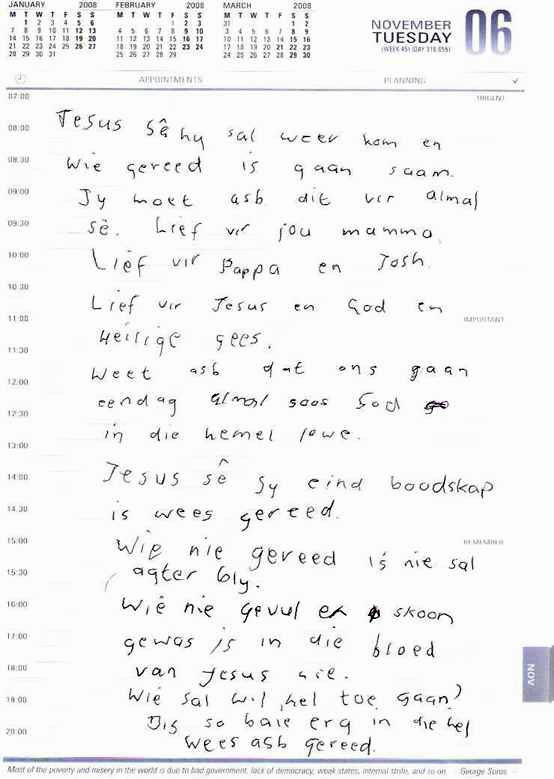 JANUARY 2008 FEBRUARY 2008 MARCH 2008
M T W T F S S M T W T F S S M T W T F S S
1 2 3 4 5 6 1 2 3 31 1 2
7 8 9 10 11 12 13 4 5 6 7 8 9 10 3 4 5 6 7 8 9
14 15 16 17 18 19 20 11 12 13 14 15 16 17 10 11 12 13 14 15 16
21 22 23 24 25 26 27 18 19 20 21 22 23 24 17 18 19 20 21 22 23
28 29 30 31 25 26 27 28 29 24 25 26 27 28 29 30
NOVEMBER
TUESDAY
(WEEK 45) (DAY 310.055)
06
APPOINTMENTS PLANNING
07:00 URGENT
08:00 Jesus sê hy sal weer kom en
08:30 Wie gereed is gaan saam.
09:00 Jy moet asb dit vir almal
09:30 sê. Lief vir jou mamma
10:00 Lief vir Pappa en Josh.
10:30 Lief vir Jesus en God en
11:00 IMPORTANT
Heilige gees.
11:30
Weet asb dat ons gaan
12:00
eendag almal soos God
12:30
in die hemel lewe.
13:00
Jesus sê sy eind boodskap
14:00
is wees gereed.
14:30
15:00 REMEMBER
Wie nie gereed is nie sal
15:30 agter bly.
16:00 Wie nie gevul en skoon
17:00 gewas is in die bloed
18:00 van Jesus nie.
19:00 Wie sal wil hel toe gaan?
Dis so baie erg in die hel
20:00 wees asb gereed.
NOV
Most of the poverty and misery in the world is due to bad government, lack of democracy, weak states, internal strife, and so on. George Soros